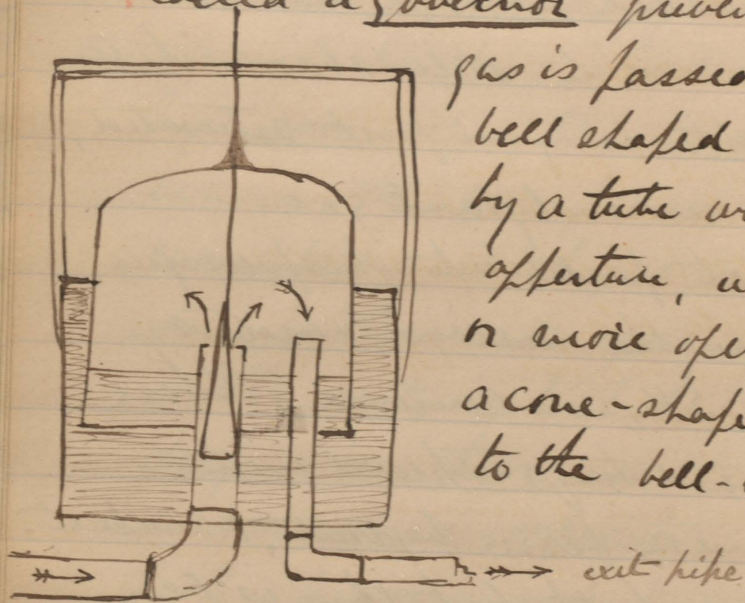 called a governor preven
gas is passed
bell shaped
by a tube w
apperture, w
or more ope
a cone-shape
to the bell-
exit pipe